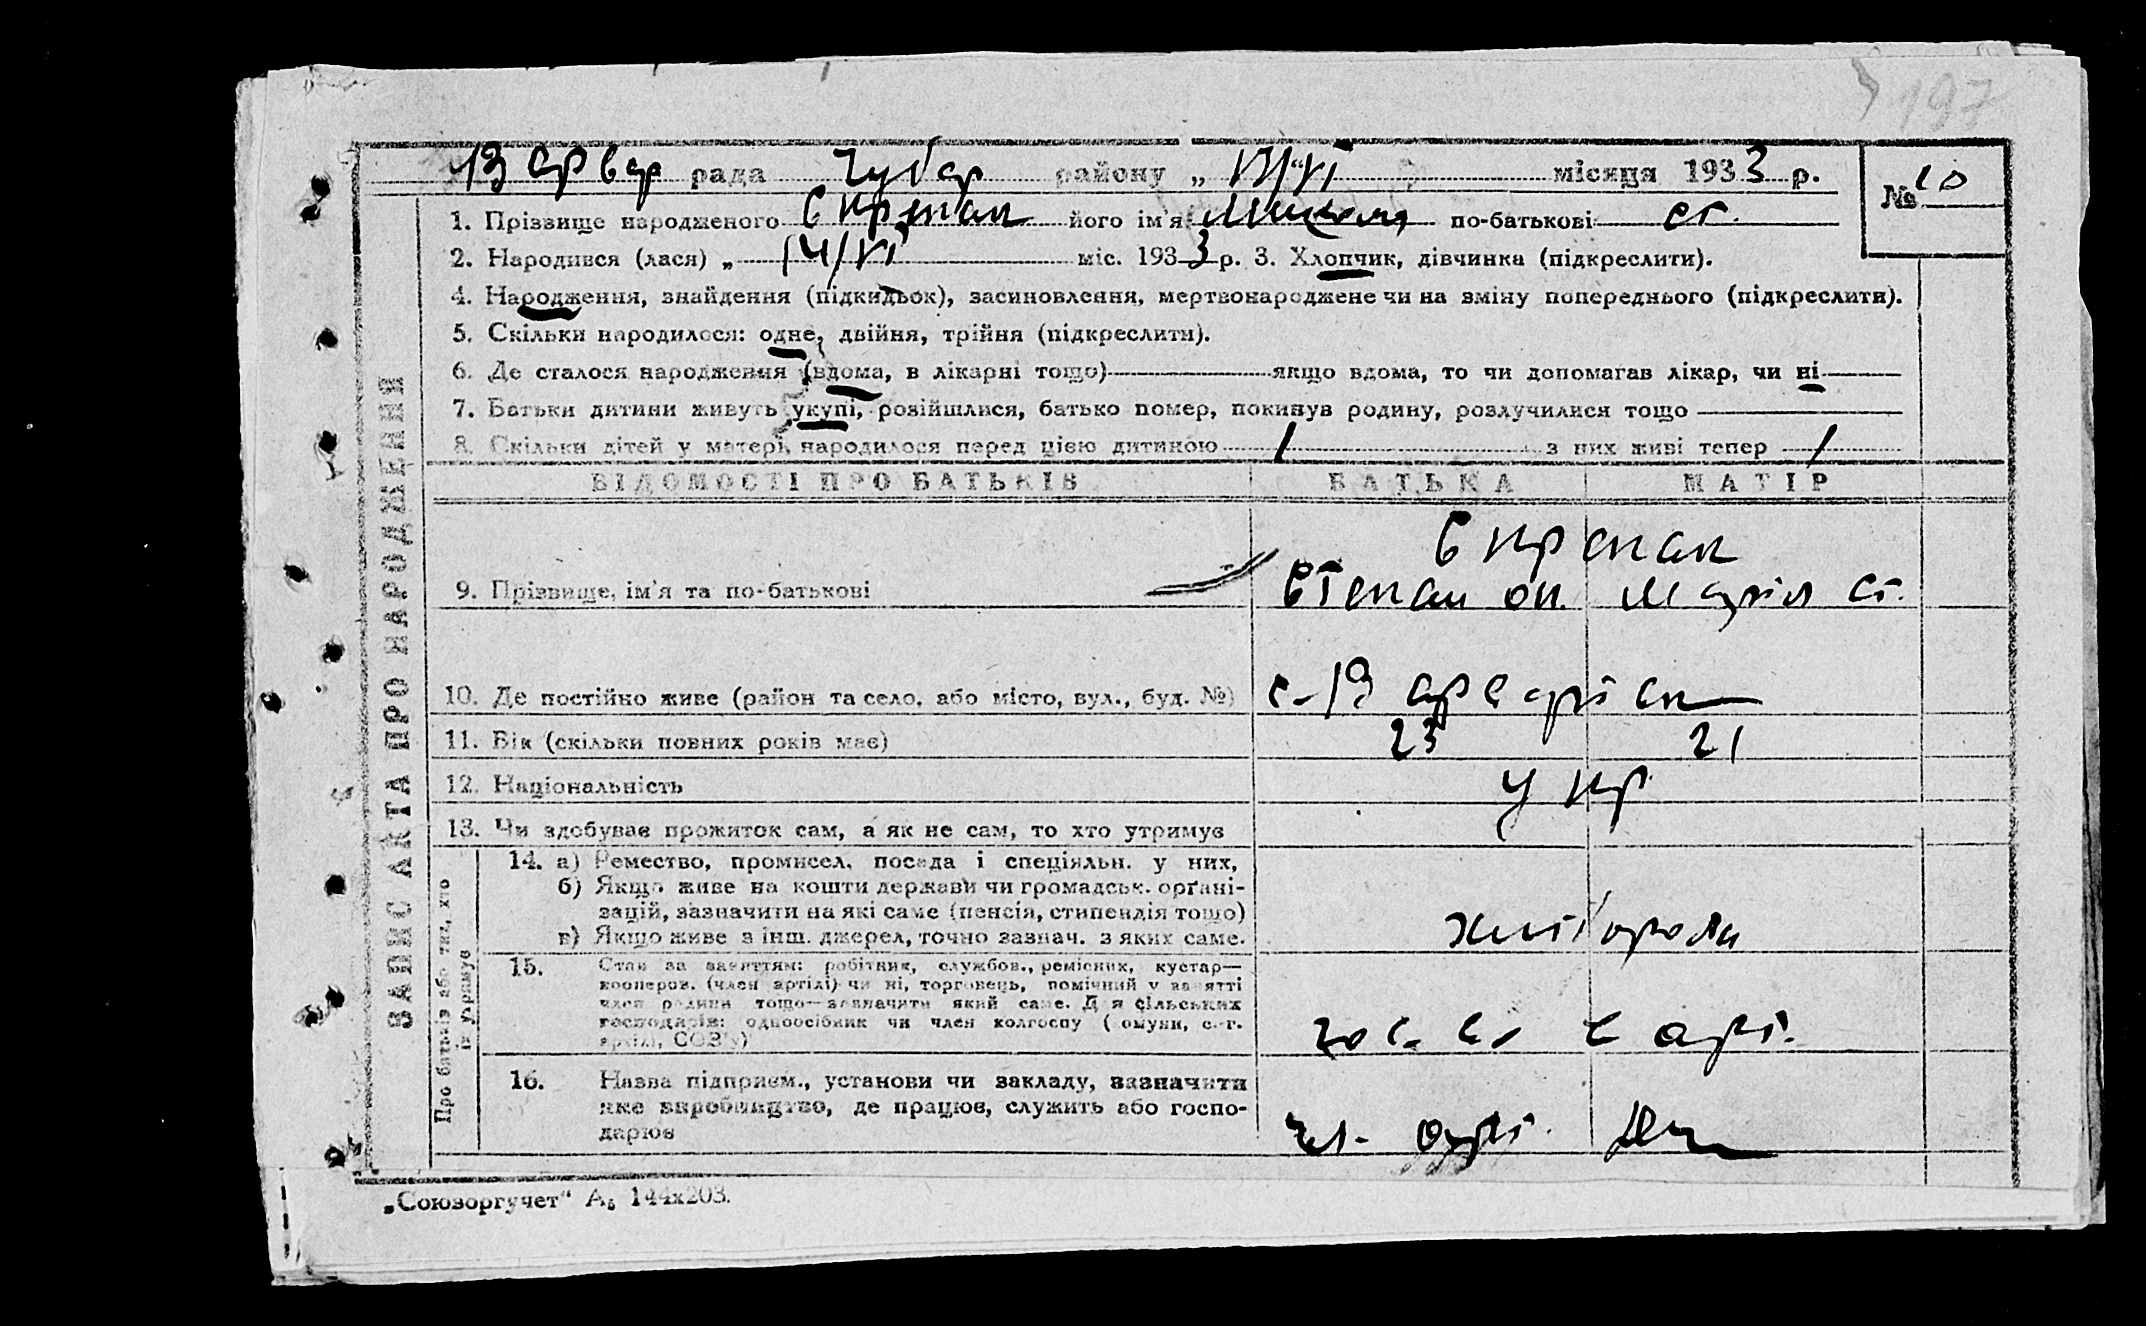 197
Варвар рада Чубар району „ VI місяця 1933 р. № 10
1. Прізвище народженого Скрепак його ім'я Микола по-батькові Ст.
2. Народився (лася) „ 14/VI міс. 1933 р. 3. Хлопчик, дівчинка (підкреслити).
4. Народження, знайдення (підкидьок), засиновлення, мертвонароджене чи на зміну попереднього (підкреслити).
5. Скільки народилося: одне, двійня, трійня (підкреслити).
6. Де сталося народження (вдома, в лікарні тощо) якщо вдома, то чи допомагав лікар, чи ні
7. Батьки дитини живуть укупі, розійшлися, батько помер, покинув родину, розлучилися тощо
8. Скільки дітей у матері народилося перед цією дитиною 1 з них живі тепер 1
ЗАПИС АКТА ПРО НАРОДЖЕННЯ
ВІДОМОСТІ ПРО БАТЬКІВ БАТЬКА МАТІР
Скрепак
9. Прізвище, ім'я та по-батькові Степан Марія Ст.
10. Де постійно живе (район та село, або місто, вул., буд. №) с.
11. Вік (скільки повних років має) 23 21
12. Національність Укр
13. Чи здобуває прожиток сам, а як не сам, то хто утримує
Про батьків або тих, хто їх утримує
14. а) Ремество, промисел, посада і спеціяльн. у них,
б) Якщо живе на кошти держави чи громадськ. організацій, зазначити на які саме (пенсія, стипендія тощо)
в) Якщо живе з інш. джерел, точно зазнач. з яких саме.
15. Стан за заняттям: робітник, службов., ремісник, кустар—
кооперов. (член артілі) чи ні, торговець, помічний у занятті
член родини тощо—зазначити який саме. Для сільських
господарів: одноосібник чи член колгоспу (комуни, с.-г.
артілі, СОЗ'у)
16. Назва підприєм., установи чи закладу, зазначити
яке виробництво, де працює, служить або госпо-
дарює
„Союзоргучет" А₅ 144х203.